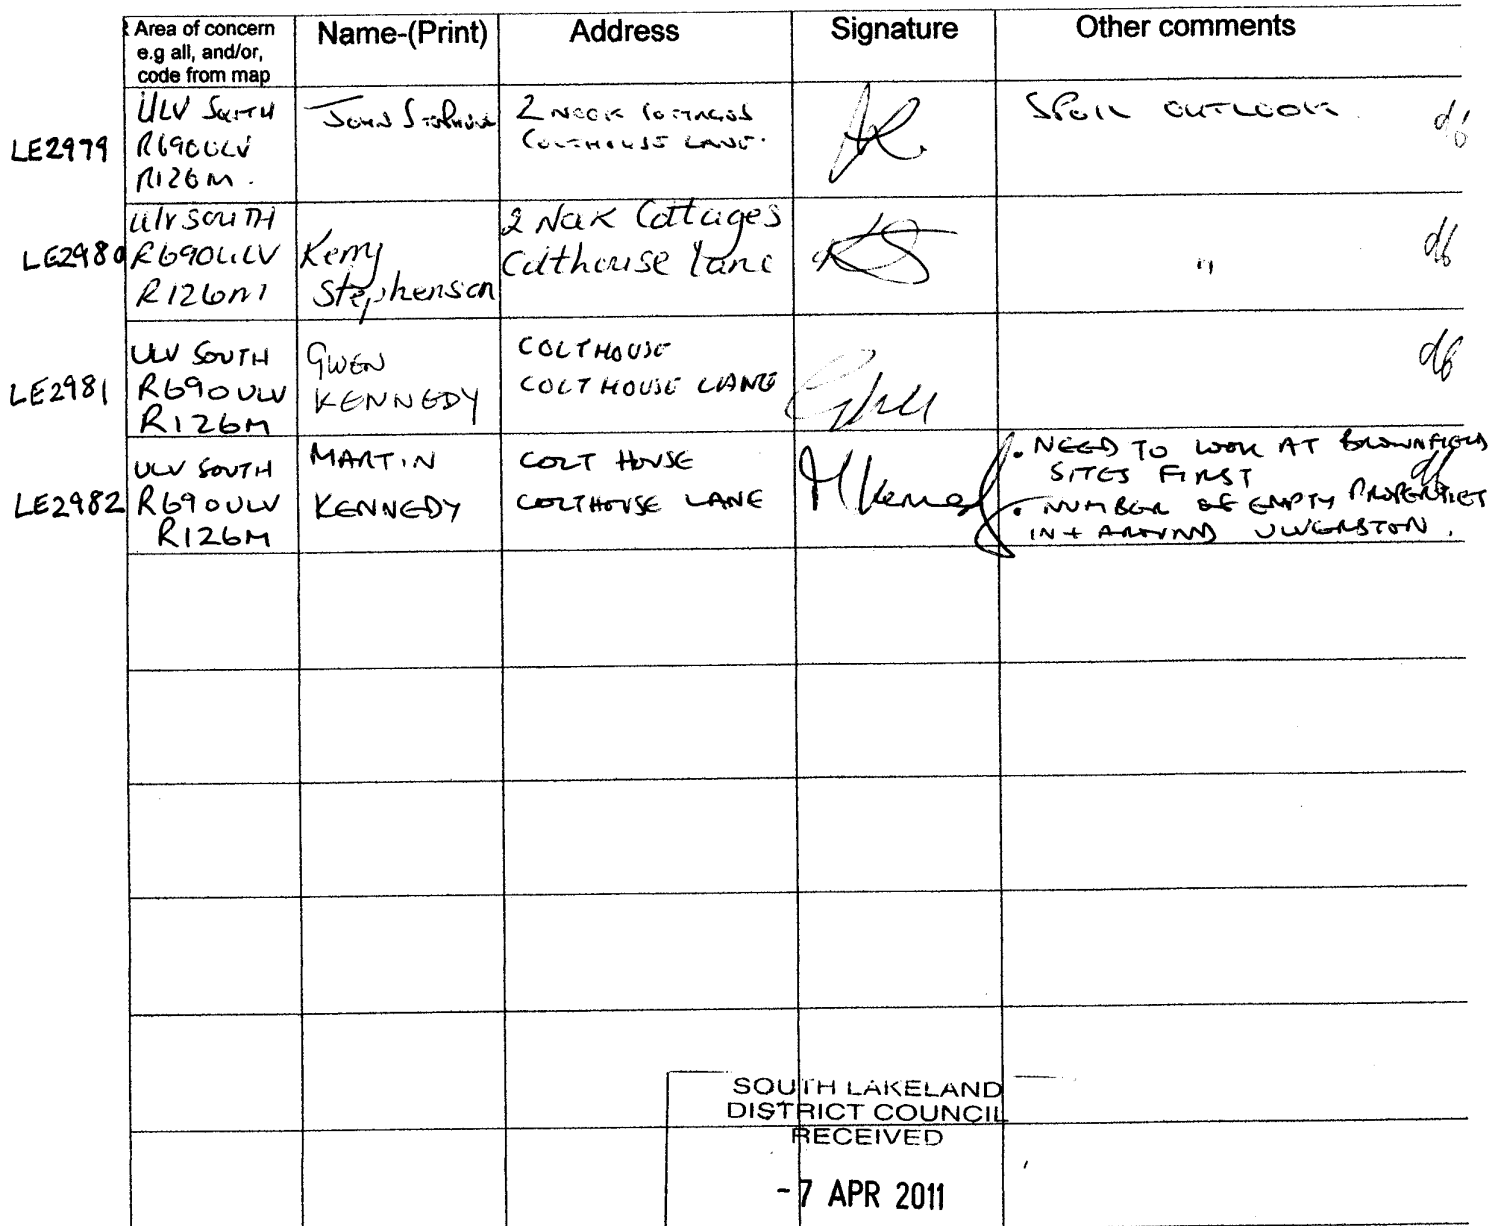 Area of concern
e.g all, and/or,
code from map
Name-(Print)
Address
Signature
Other comments
LE2979
ULV South
R690ULV
R126M.
John
2 Nook Cottages
Colthouse Lane.
Spoil Outlook
LE2980
Ulv South
R690ULV
R126M
Kerry
Stephenson
2 Nook Cottages
Colthouse Lane
"
LE2981
ULV South
R690ULV
R126M
Gwen
KENNEDY
COLTHOUSE
COLTHOUSE LANE
LE2982
ULV SOUTH
R690ULV
R126M
MARTIN
KENNEDY
COLT HOUSE
COLTHOUSE LANE
M Kennedy
. NEED TO LOOK AT BROWNFIELD
SITES FIRST
. NUMBER OF EMPTY PROPERTIES
IN + AROUND ULVERSTON.
SOUTH LAKELAND
DISTRICT COUNCIL
RECEIVED
-7 APR 2011